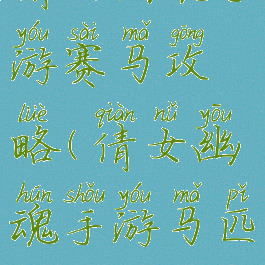 yóu sài mǎ gōng
游赛马攻
lüè qiàn nǚ yōu
略(倩女幽
hún shǒu yóu mǎ pǐ
魂手游马匹